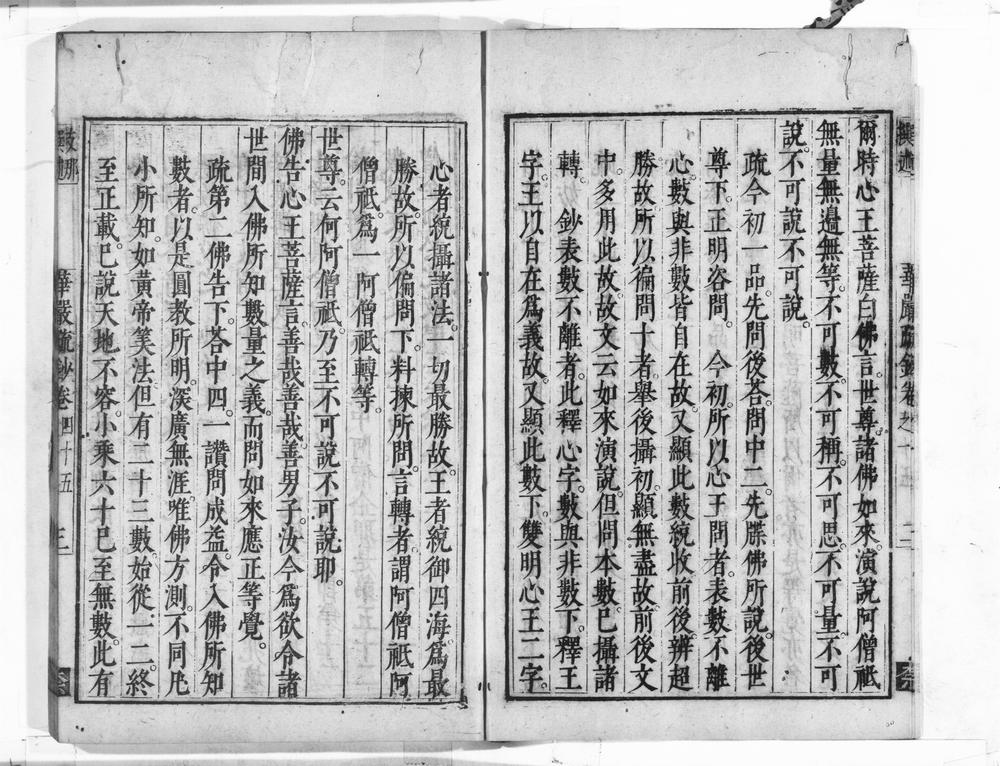 爾時心王菩薩白佛言。世尊。諸佛如來。演說阿僧祇
無量無邊無等。不可數。不可稱。不可思。不可量。不可
說。不可說不可說。
疏今初一品。先問後荅。問中二。先牒佛所說。後世
尊下。正明咨問。　今初。所以心王問者。表數不離
心。數與非數。皆自在故。又顯此數統收前後。辨超
勝故。所以徧問十者。舉後攝初。顯無盡故。前後文
中。多用此故。故文云如來演說。但問本數。已攝諸
轉。　鈔表數不離者。此釋心字。數與非數下。釋王
字。王以自在爲義故。又顯此數下。雙明心王二字。
華嚴疏鈔卷四十五　三
心者統攝諸法。一切最勝故。王者統御四海。爲最
勝故。所以偏問下。料揀所問。言轉者。謂阿僧祇阿
僧祇。爲一阿僧祇轉等。
世尊。云何阿僧祇。乃至不可說不可說耶。
佛告心王菩薩言。善哉善哉。善男子。汝今爲欲令諸
世間入佛所知數量之義。而問如來應正等覺。
疏第二佛告下。荅中四。一讚問成益。令入佛所知
數者。以是圓教所明。深廣無涯。唯佛方測。不同凡
小所知。如黃帝筭法。但有二十三數。始從一二。終
至正載。已說天地不容。小乘六十。已至無數。此有